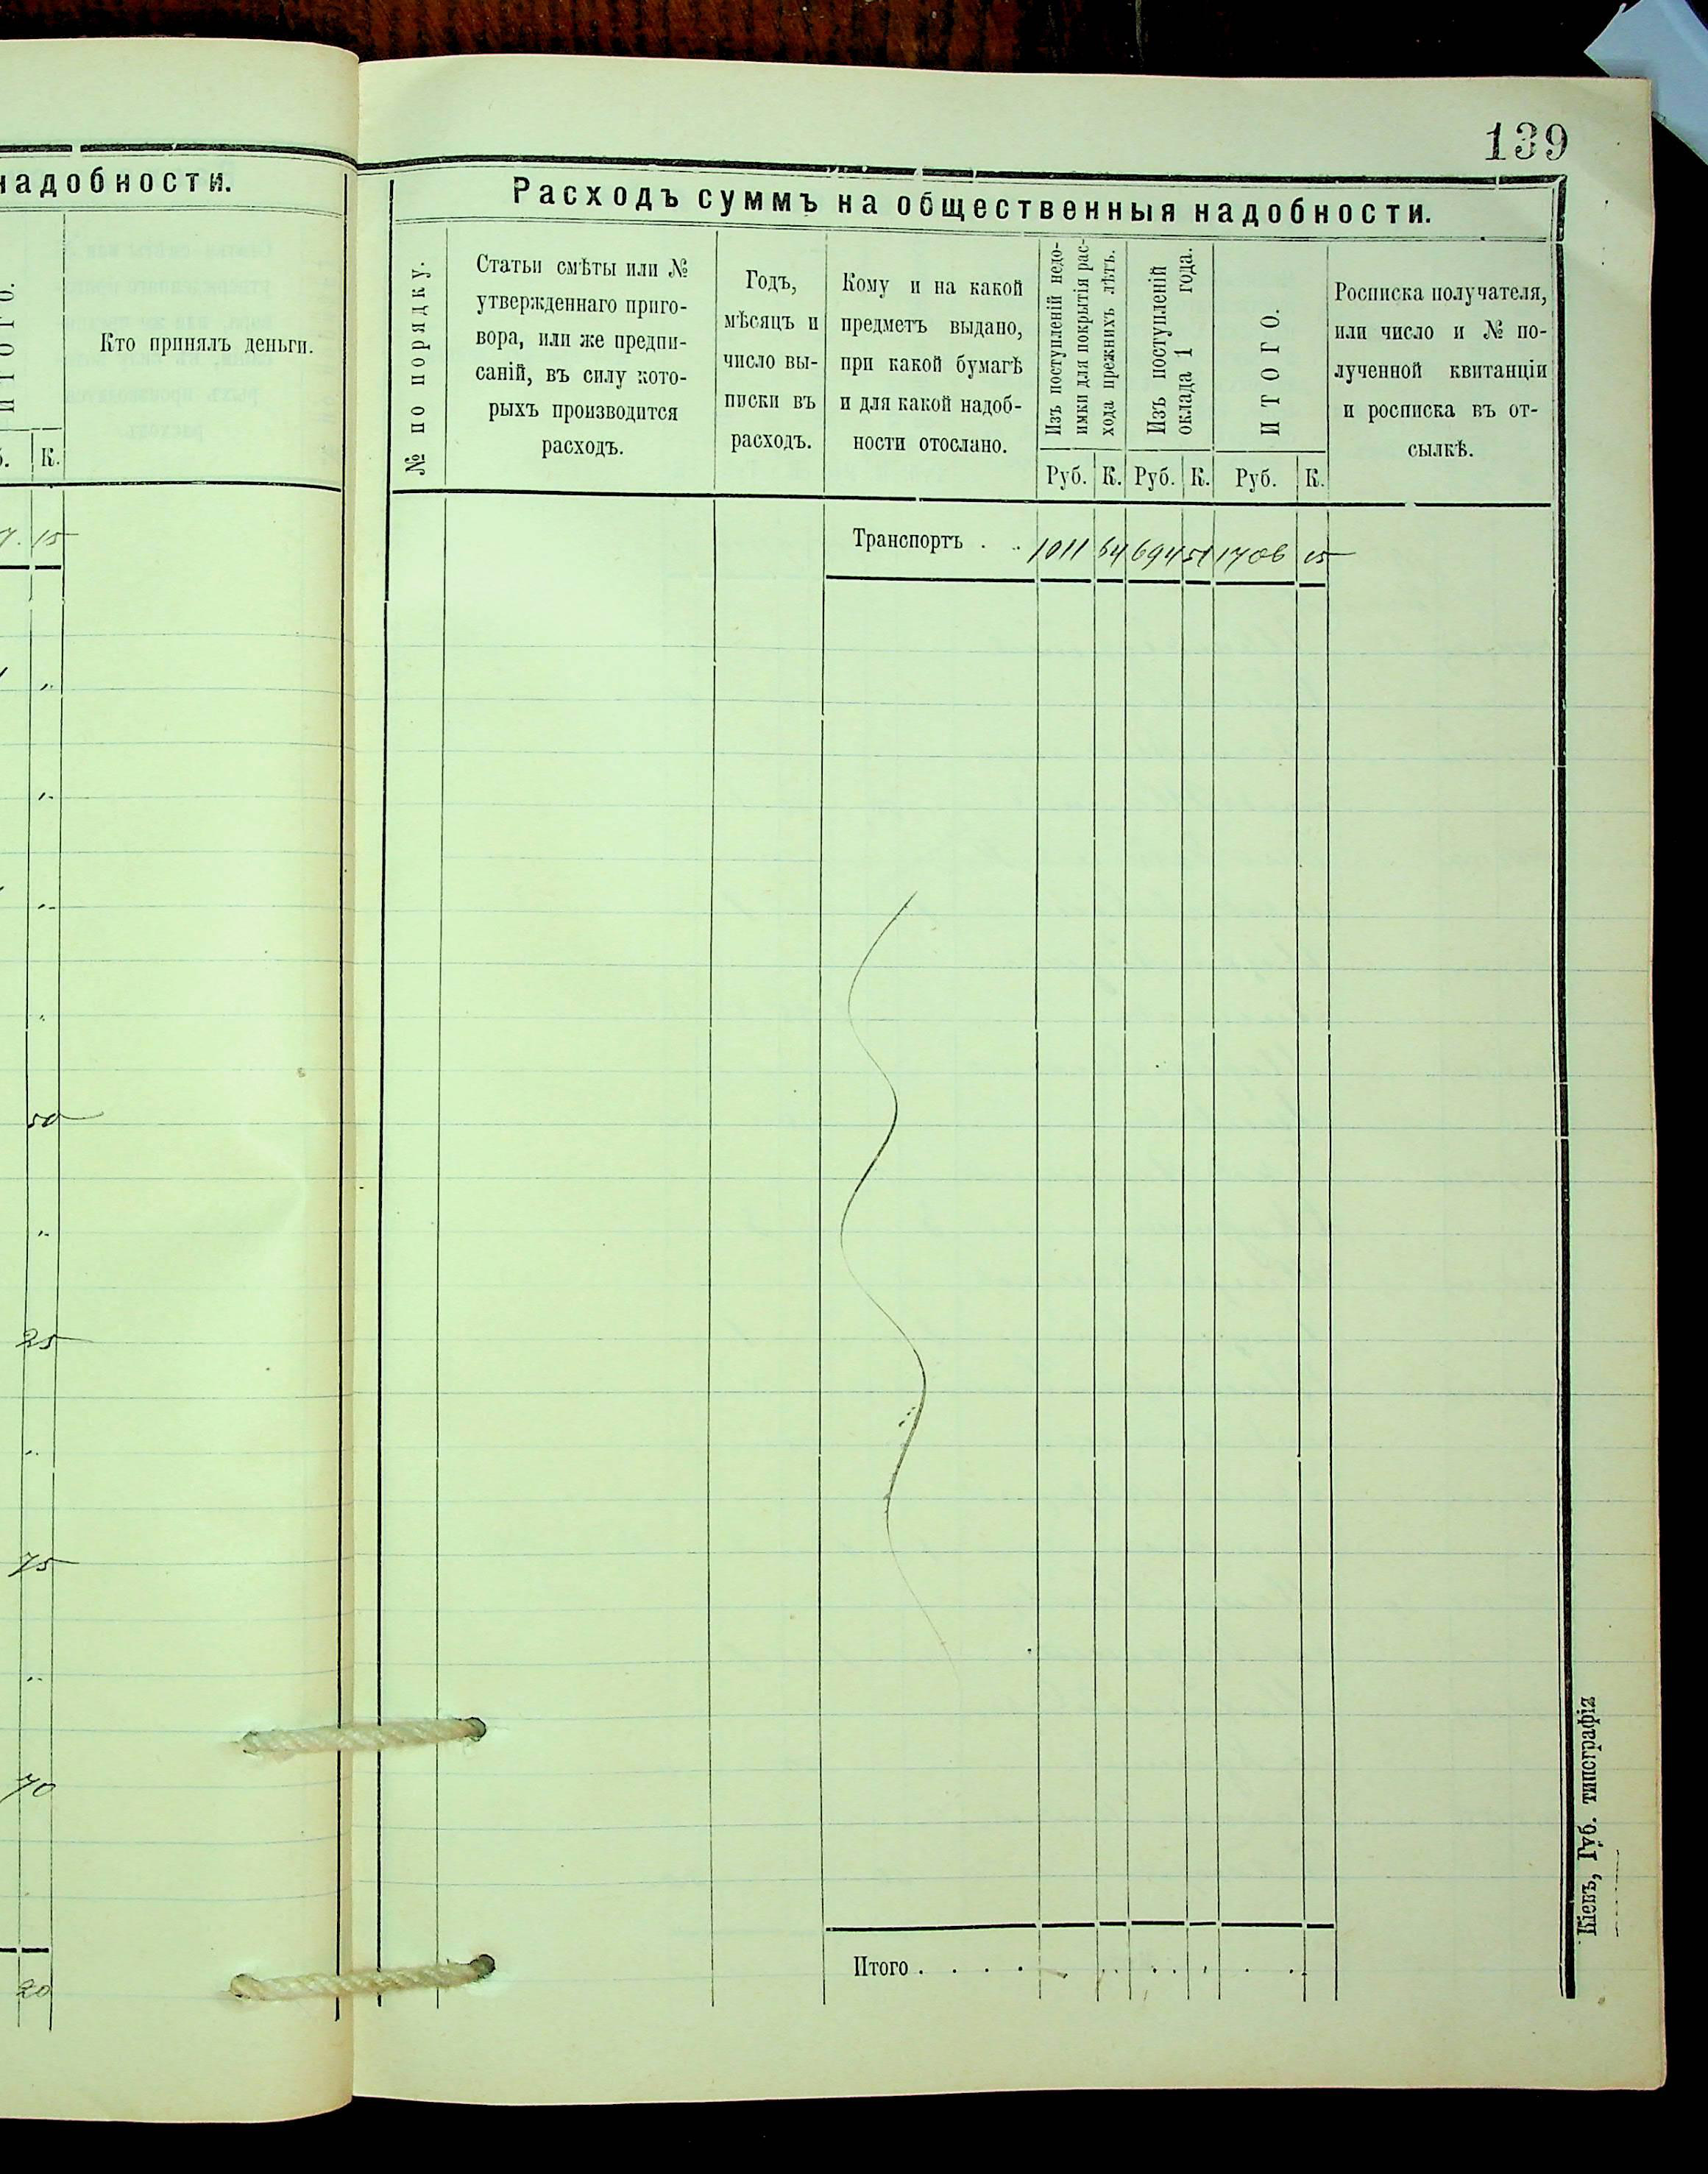 надобности.
И Т О Г О.
Кто принялъ деньги.
К.
15
50
25
75
70
20
139
Расходъ суммъ на общественныя надобности.
№ по порядку.
Статьи смѣты или №
утвержденнаго приго-
вора, или же предпи-
саній, въ силу кото-
рыхъ производится
расходъ.
Годъ,
мѣсяцъ и
число вы-
писки въ
расходъ.
Кому и на какой
предметъ выдано,
при какой бумагѣ
и для какой надоб-
ности отослано.
Изъ поступленій недо-
имки для покрытія рас-
хода прежнихъ лѣтъ.
Изъ поступленій
оклада 1 года.
И Т О Г О.
Росписка получателя,
или число и № по-
лученной квитанціи
и росписка въ от-
сылкѣ.
Руб. К. Руб. К. Руб. К.
Транспортъ . . 1011 64 694 51 1706 15
Итого . . . . .
Кіевъ, Губ. типографія